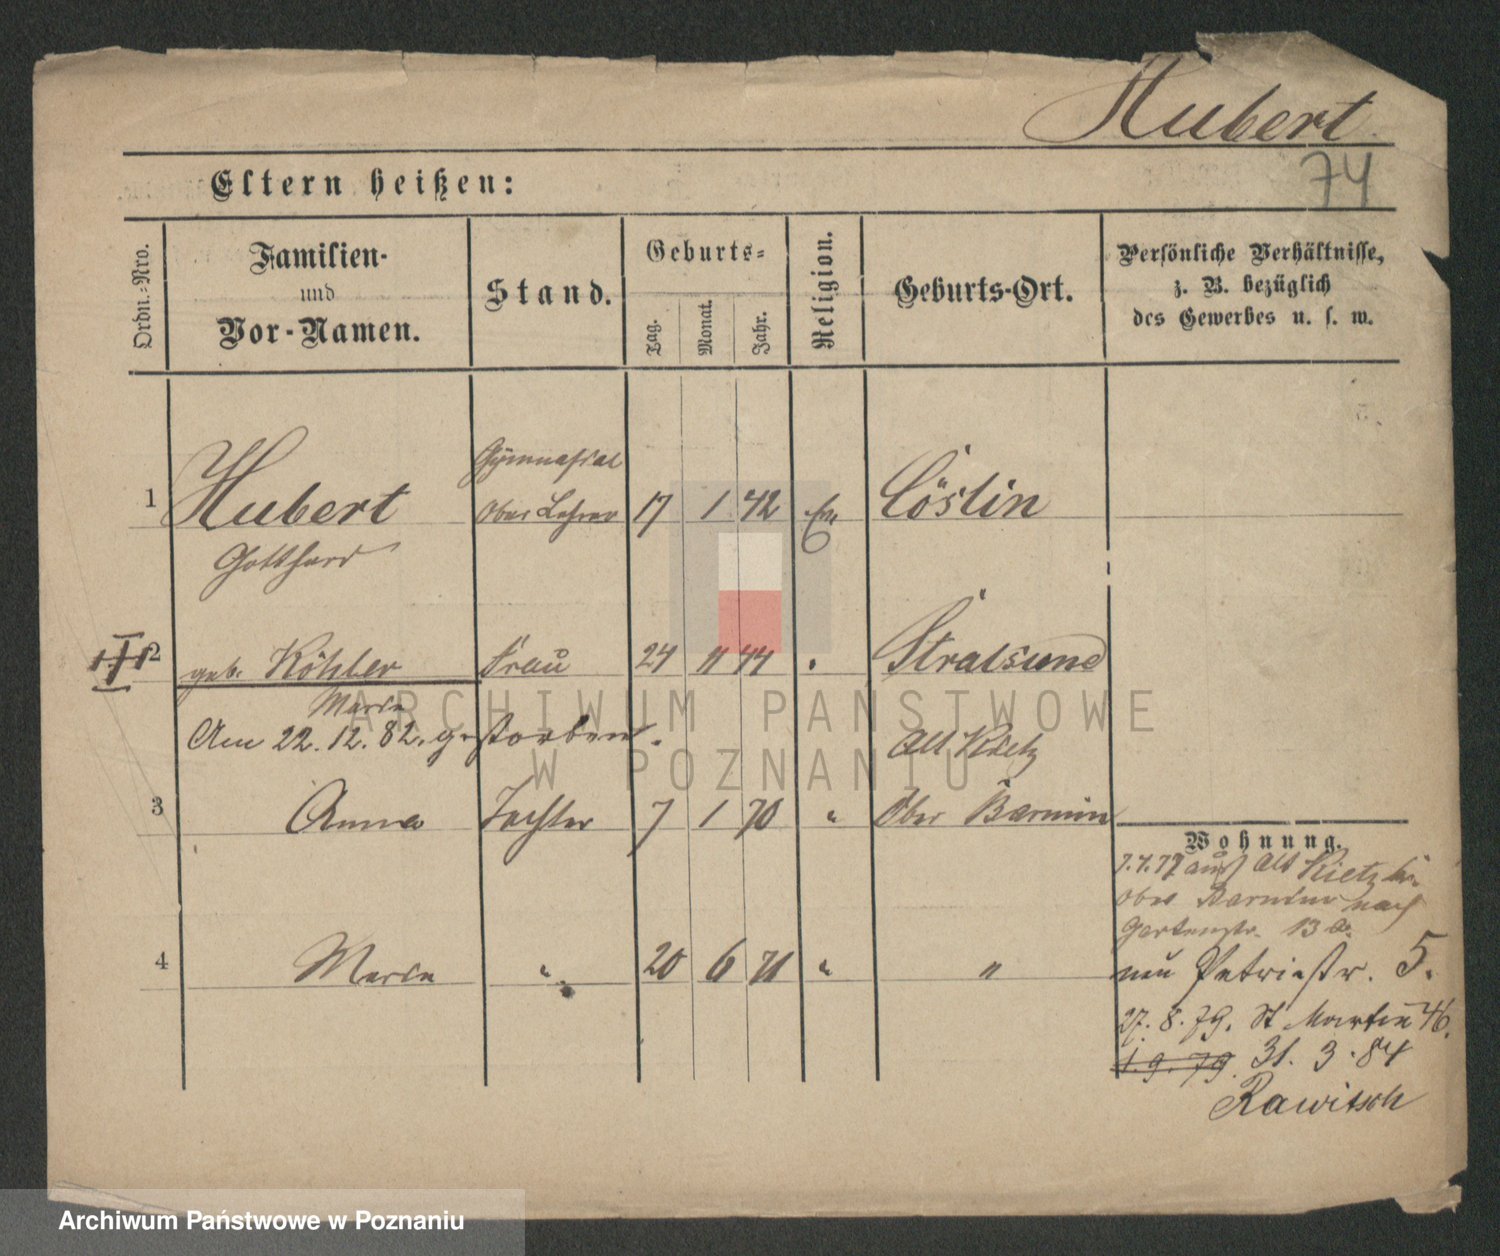 Hubert.
74
Eltern heißen:
Ordn.-Nro.
Familien-
und
Vor-Namen.
Stand.
Geburts-
Tag.
Monat.
Jahr.
Religion.
Geburts-Ort.
Persönliche Verhältnisse,
z. B. bezüglich
des Gewerbes u. s. w.
Gymnasial
1 Hubert Ober Lehrer 17 1 42 Ev Cöslin
Gotthard
2 geb. Köhler Frau 24 11 44 " Stralsund
Marie
Am 22. 12. 82. gestorben.
Alt Rietz
3 Anna Tochter 7 1 70 " Ober Barnim
4 Marie " 20 6 71 " "
Wohnung.
7.4.77 aus Alt Rietz
Ober Barnim nach
Gartenstr. 13 a.
neu Petristr. 5.
27. 8. 79. St Martin 46.
1. 9. 79. 31. 3. 84
Rawitsch
ARCHIWUM PAŃSTWOWE
W POZNANIU
Archiwum Państwowe w Poznaniu